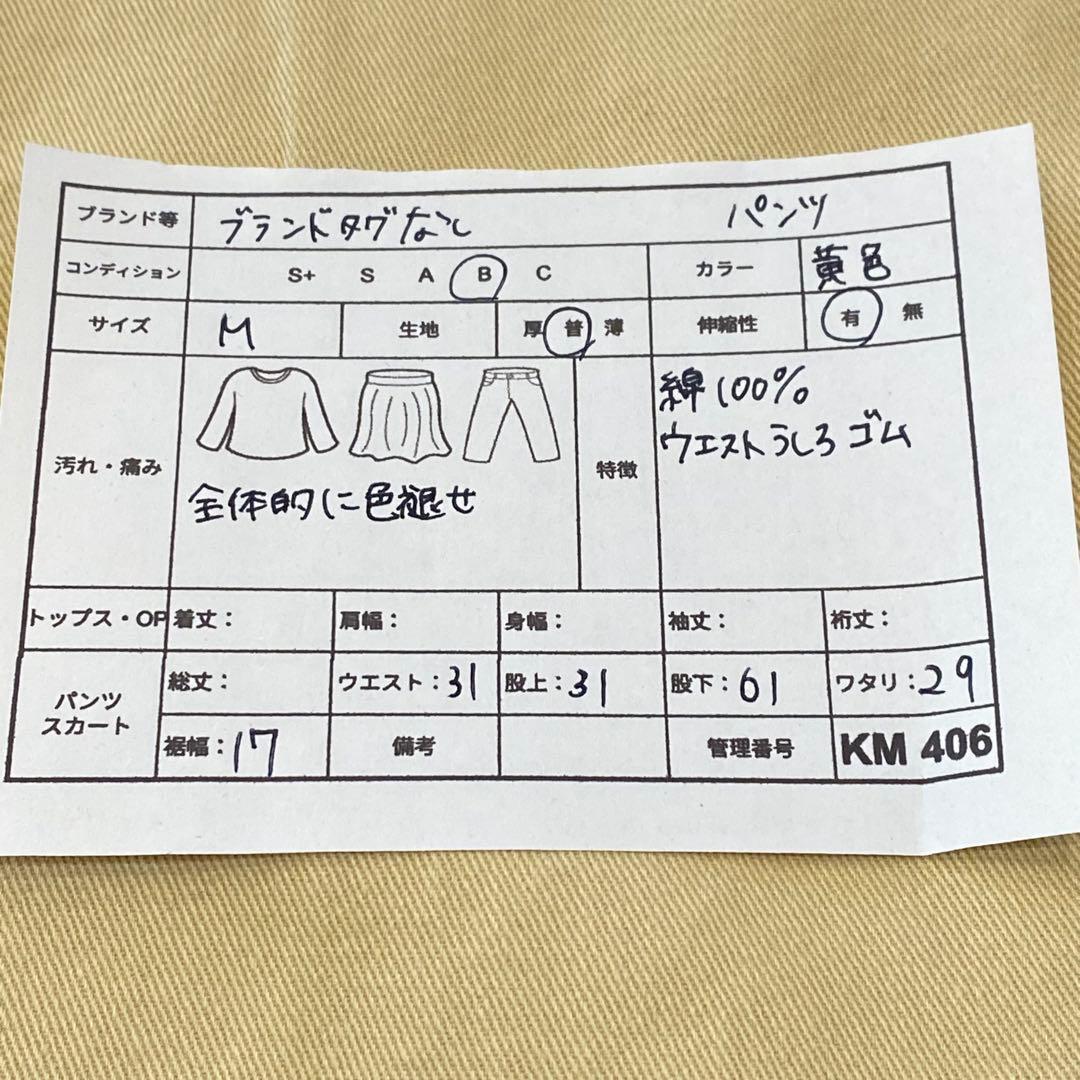 ブランド等 ブランドタグなし パンツ
コンディション S+ S A B C カラー 黄色
サイズ M 生地 厚 普 薄 伸縮性 有 無
汚れ・痛み 全体的に色褪せ
特徴 綿100%
ウエストうしろゴム
トップス・OP 着丈: 肩幅: 身幅: 袖丈: 裄丈:
パンツ
スカート
総丈: ウエスト:31 股上:31 股下:61 ワタリ:29
裾幅:17 備考 管理番号 KM 406